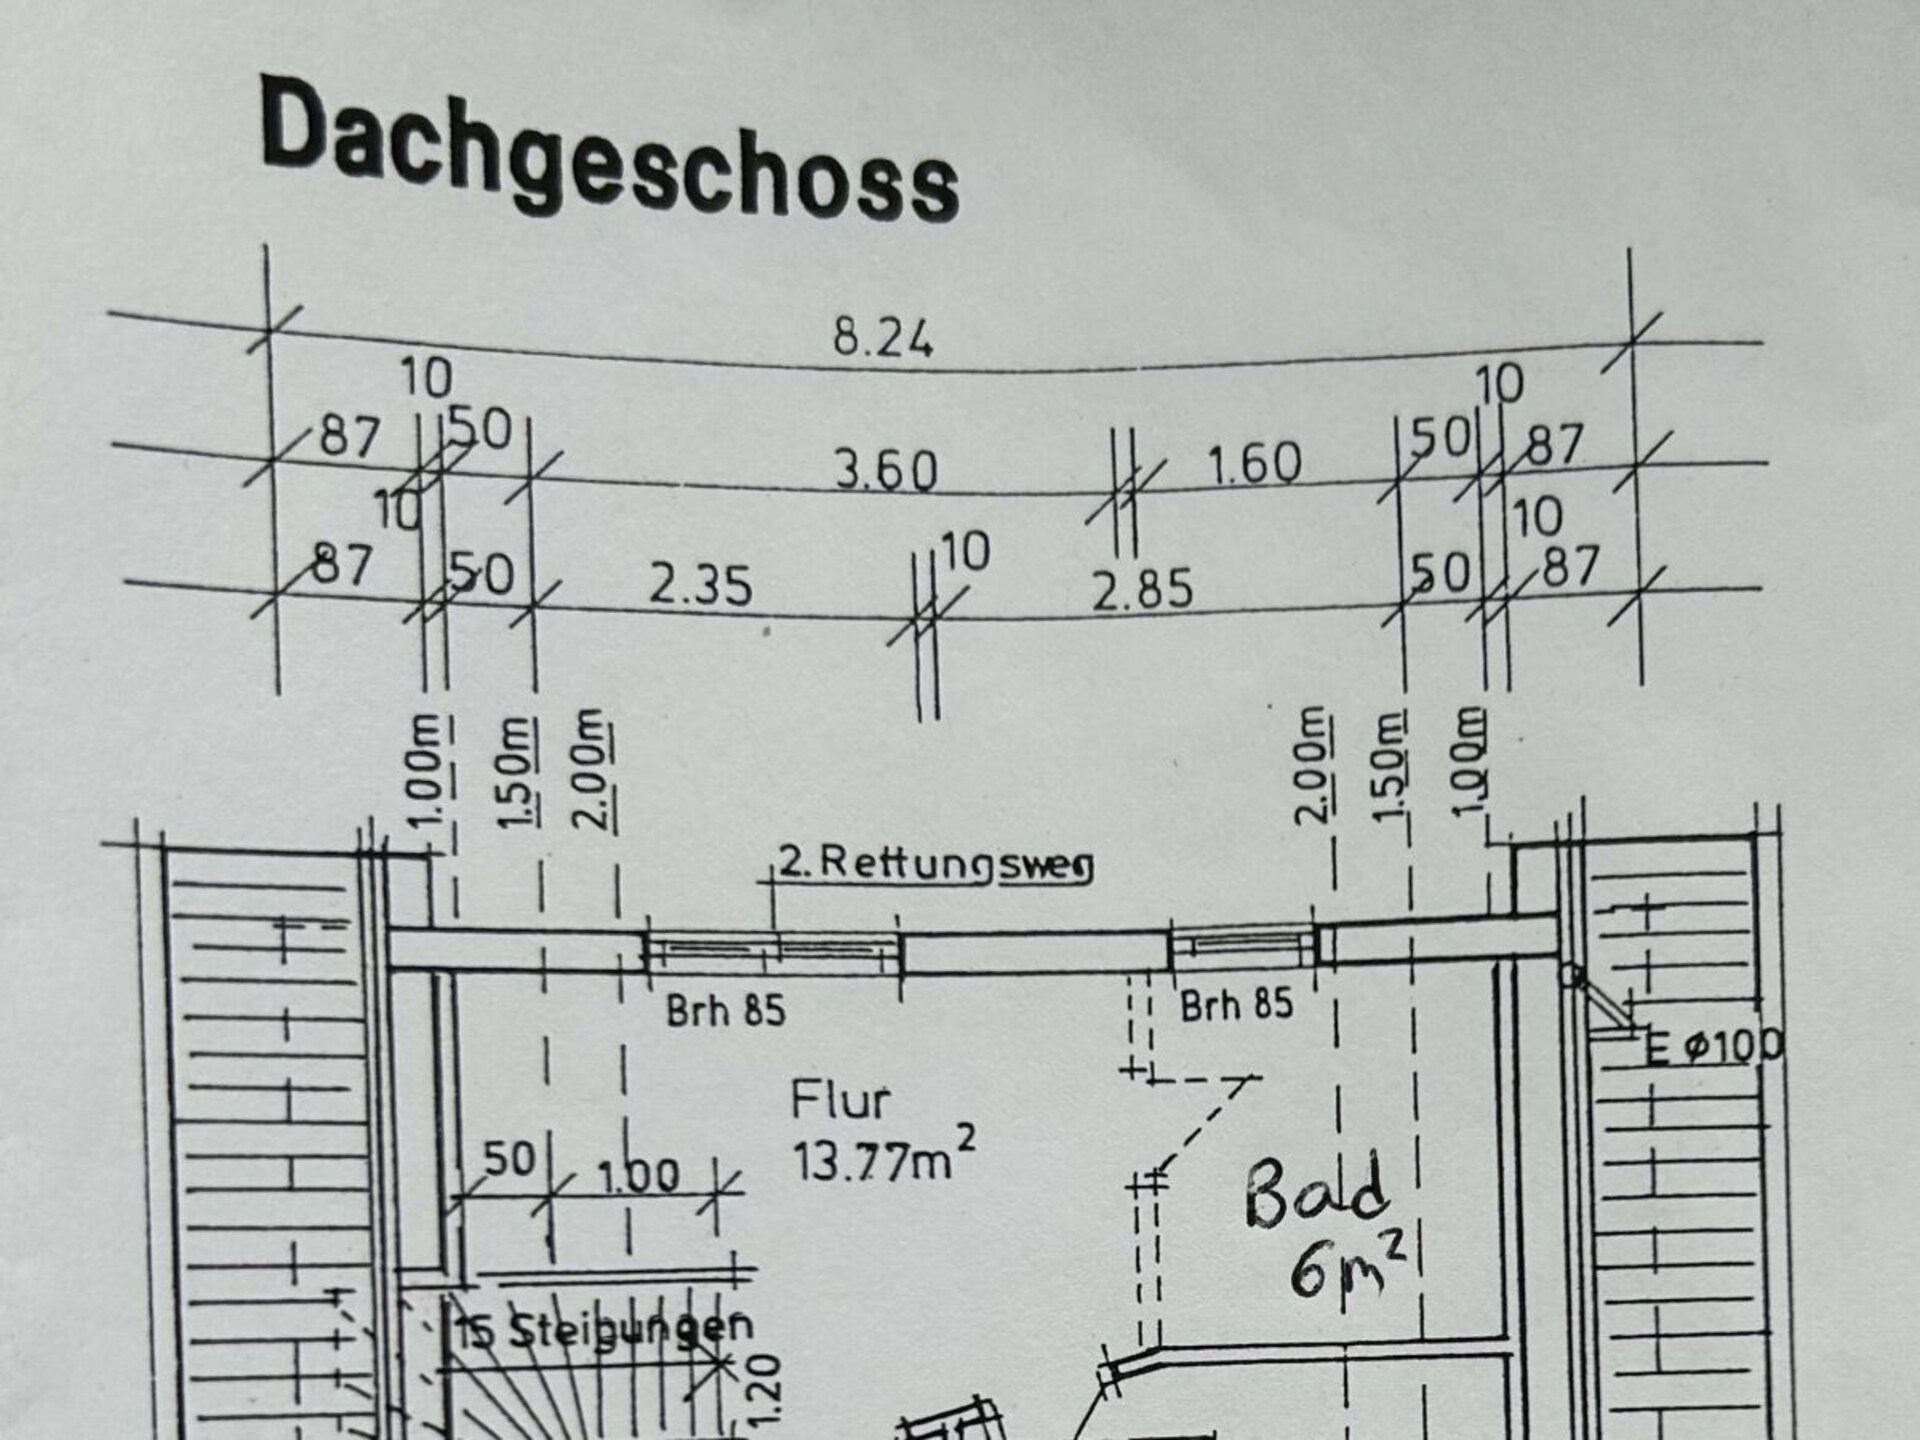 Dachgeschoss
8.24
10 10
87 50 3.60 1.60 50 87
10 10 10
87 50 2.35 2.85 50 87
1.00m 1.50m 2.00m 2.00m 1.50m 1.00m
2. Rettungsweg
Brh 85 Brh 85
E ø100
Flur
13.77m²
50 1.00
Bad
6m²
15 Steigungen
1.20